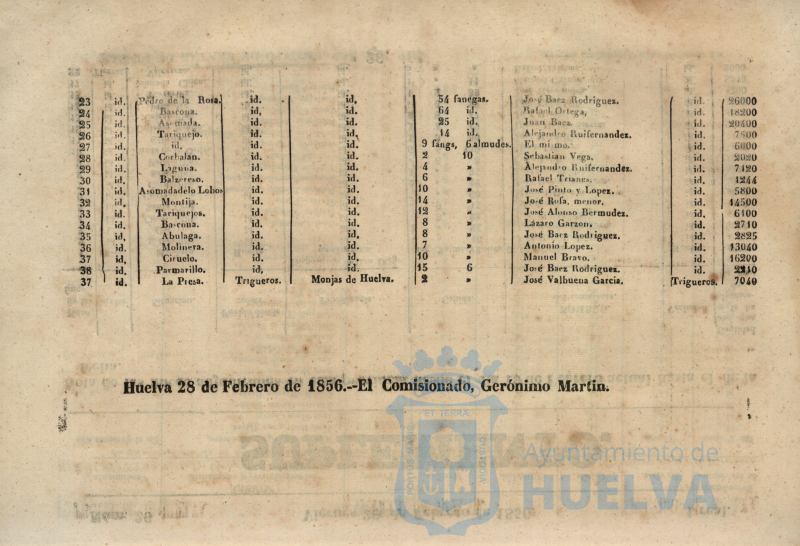 23 id. Pedro de la Rosa. id. id. 54 fanegas. José Baez Rodriguez. id. 26000
24 id. Bascona. id. id. 64 id. Rafael Ortega, id. 18200
25 id. Asomada. id. id. 25 id. Juan Baez. id. 20400
26 id. Tariquejo. id. id. 14 id. Alejandro Ruifernandez. id. 7800
27 id. id. id. id. 9 fangs, 6 almudes. El mismo. id. 6000
28 id. Corbalan. id. id. 2 10 Sebastian Vega. id. 2020
29 id. Laguna. id. id. 4 » Alejandro Ruifernandez. id. 7120
30 id. Balzereso. id. id. 6 » Rafael Trianes. id. 1244
31 id. Asomadadelo Lobos id. id. 10 » José Pinto y Lopez. id. 5800
32 id. Montija. id. id. 14 » José Rosa, menor. id. 14500
33 id. Tariquejos. id. id. 12 » José Alonso Bermudez. id. 6100
34 id. Bascona. id. id. 8 » Lázaro Garzon. id. 2710
35 id. Abulaga. id. id. 8 » José Baez Rodriguez. id. 2825
36 id. Molinera. id. id. 7 » Antonio Lopez. id. 13040
37 id. Ciruelo. id. id. 10 » Manuel Bravo. id. 16200
38 id. Parmarillo. id. id. 15 6 José Baez Rodriguez. id.
37 id. La Presa. Trigueros. Monjas de Huelva. 2 » José Valbuena Garcia. Trigueros. 7040
Huelva 28 de Febrero de 1856.--El Comisionado, Gerónimo Martin.
Ayuntamiento de
HUELVA